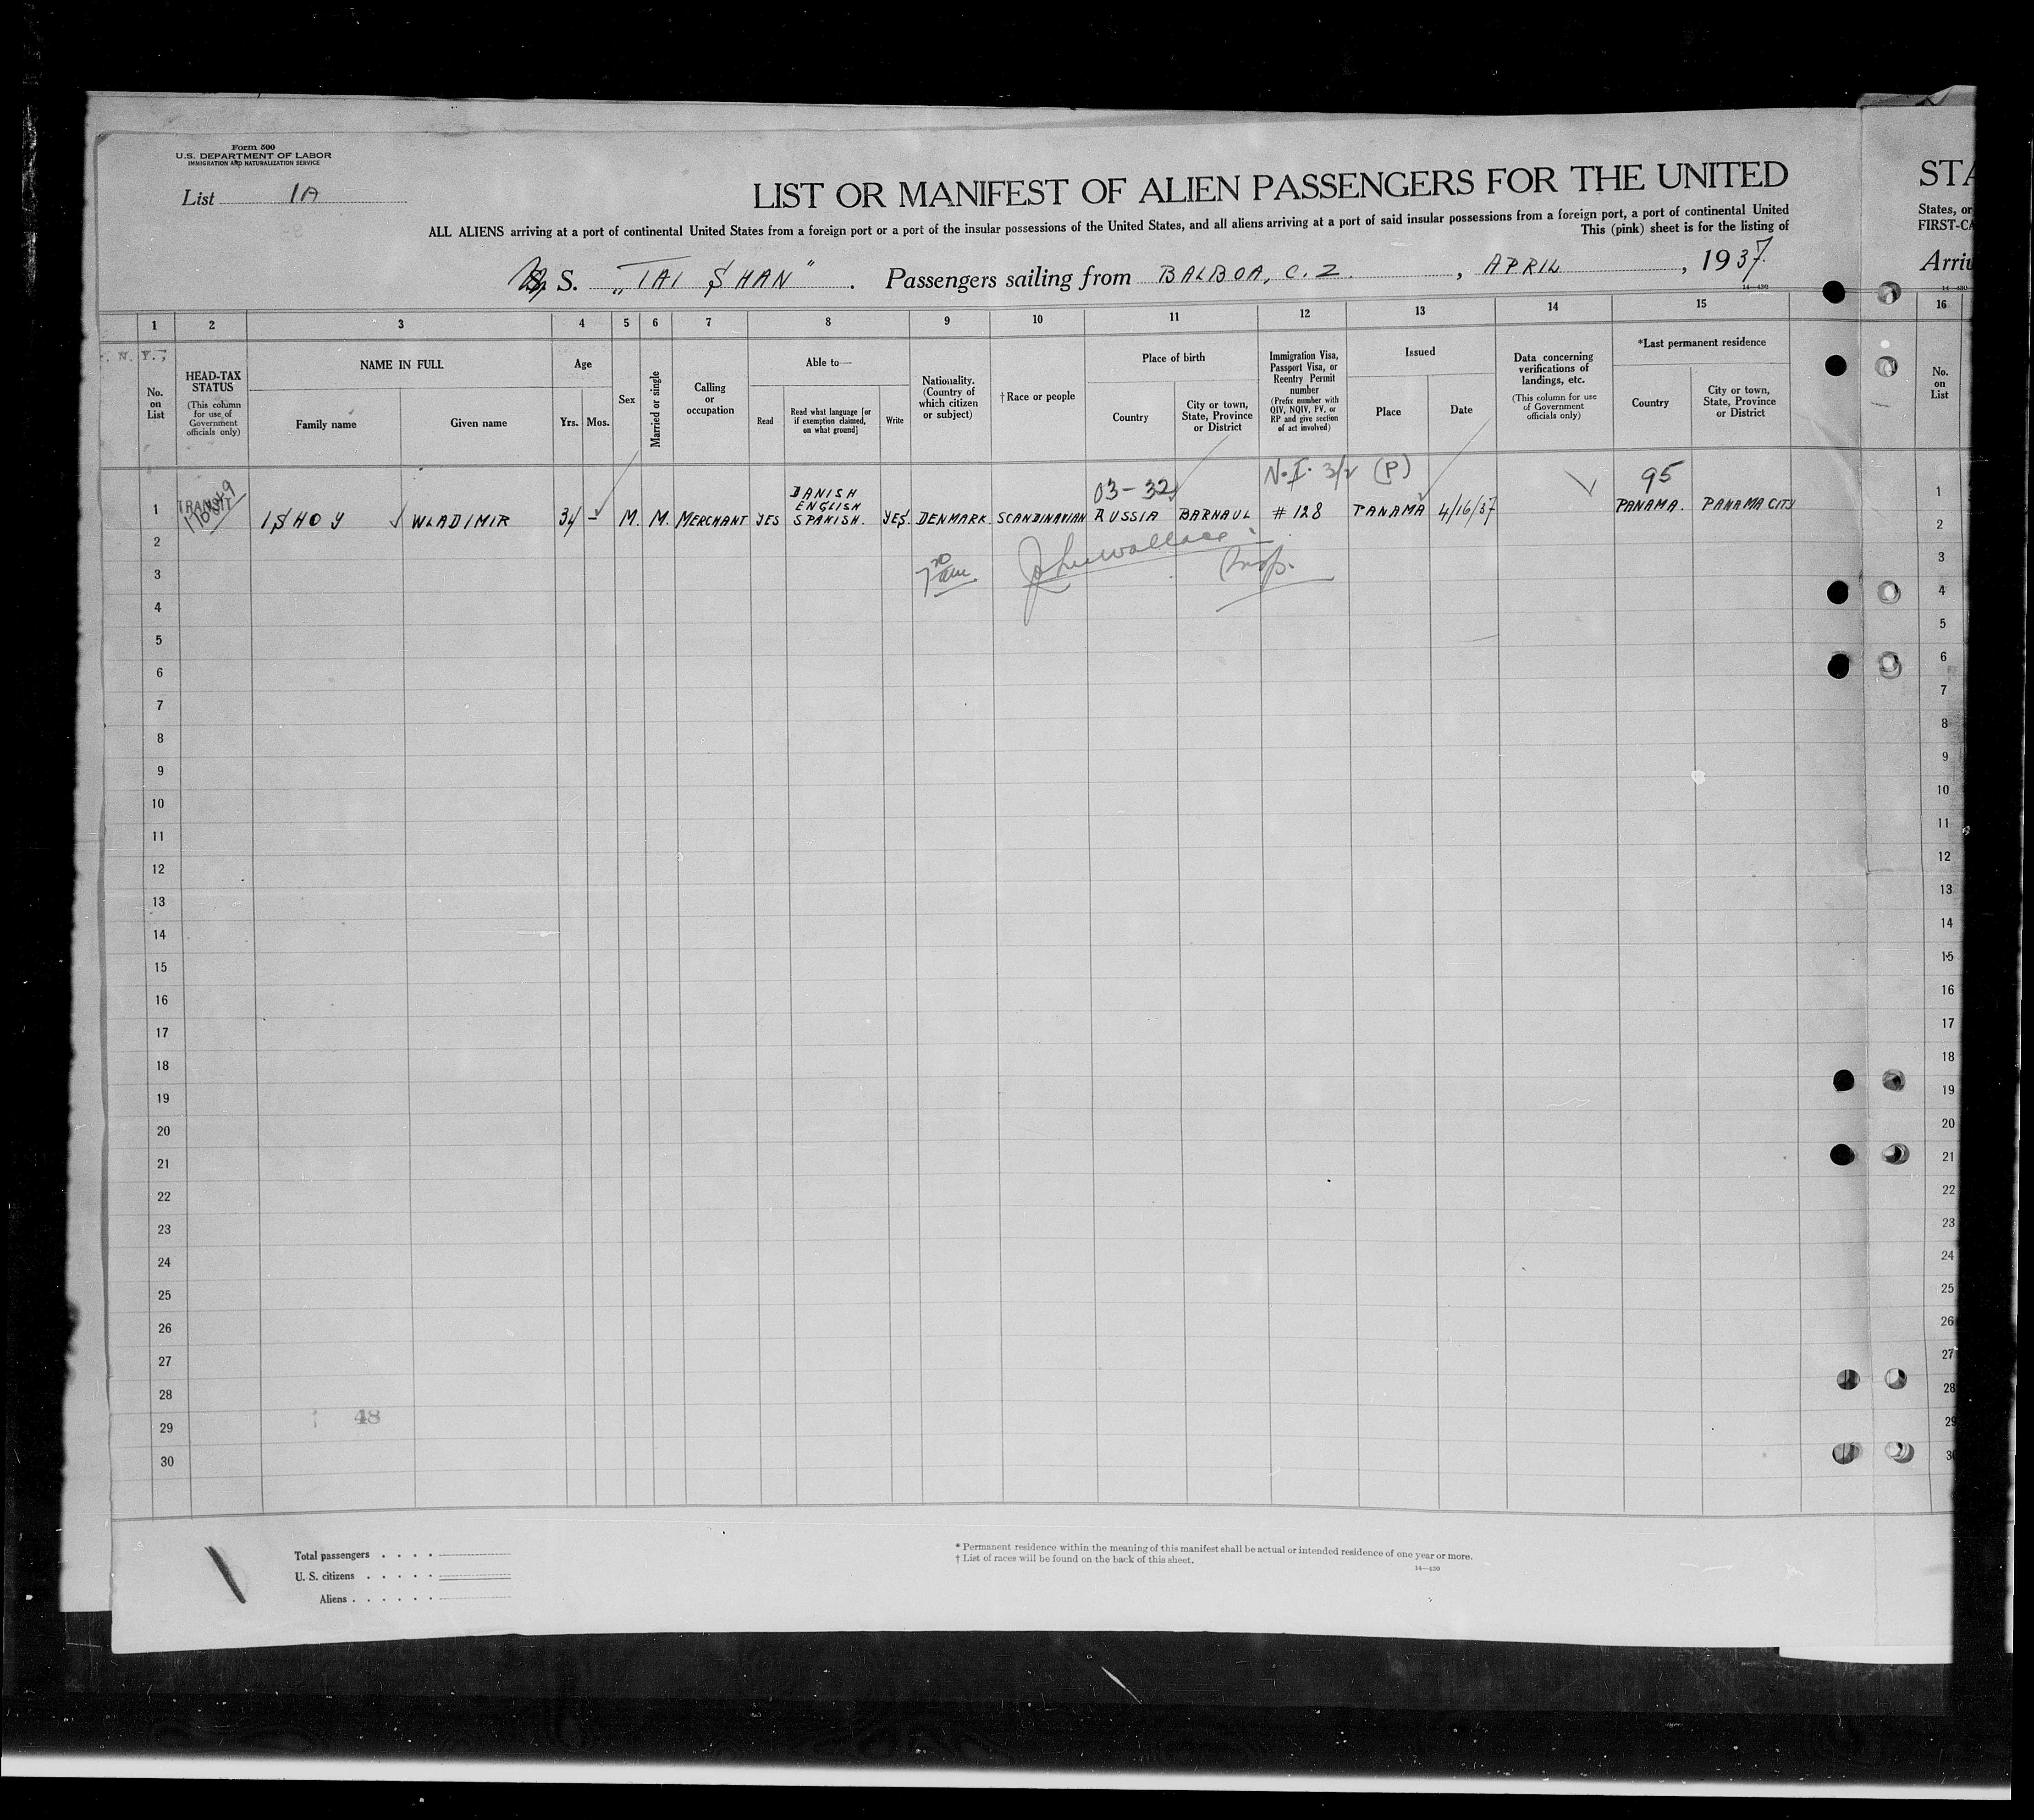 Form 500
U.S. DEPARTMENT OF LABOR
IMMIGRATION AND NATURALIZATION SERVICE
List 1A
LIST OR MANIFEST OF ALIEN PASSENGERS FOR THE UNITED
STA
ALL ALIENS arriving at a port of continental United States from a foreign port or a port of the insular possessions of the United States, and all aliens arriving at a port of said insular possessions from a foreign port, a port of continental United
States, or
This (pink) sheet is for the listing of
FIRST-CA
S. „TAI SHAN“. Passengers sailing from BALBOA, C.Z., APRIL, 1937
Arriv
14—430
1 2 3 4 5 6 7 8 9 10 11 12 13 14 15 16
N. Y.,
No. on List
HEAD-TAX STATUS
(This column for use of Government officials only)
NAME IN FULL
Family name
Given name
Age
Yrs.
Mos.
Sex
Married or single
Calling or occupation
Able to—
Read
Read what language [or if exemption claimed, on what ground]
Write
Nationality. (Country of which citizen or subject)
†Race or people
Place of birth
Country
City or town, State, Province or District
Immigration Visa, Passport Visa, or Reentry Permit number
(Prefix number with QIV, NQIV, PV, or RP and give section of act involved)
Issued
Place
Date
Data concerning verifications of landings, etc.
(This column for use of Government officials only)
*Last permanent residence
Country
City or town, State, Province or District
No. on List
03-32 N.I. 3/2 (P) 95
1 TRANSIT ISHOY WLADIMIR 34 - M. M. MERCHANT YES DANISH ENGLISH SPANISH. YES. DENMARK. SCANDINAVIAN RUSSIA BARNAUL # 128 PANAMA 4/16/37 PANAMA. PANAMA CITY 1
2 2
John Wallace
3 3
Insp.
4 4
5 5
6 6
7 7
8 8
9 9
10 10
11 11
12 12
13 13
14 14
15 15
16 16
17 17
18 18
19 19
20 20
21 21
22 22
23 23
24 24
25 25
26 26
27 27
28 28
48
29 29
30 30
Total passengers . . . .
U. S. citizens . . . . .
Aliens . . . . . .
* Permanent residence within the meaning of this manifest shall be actual or intended residence of one year or more.
† List of races will be found on the back of this sheet.
14—430